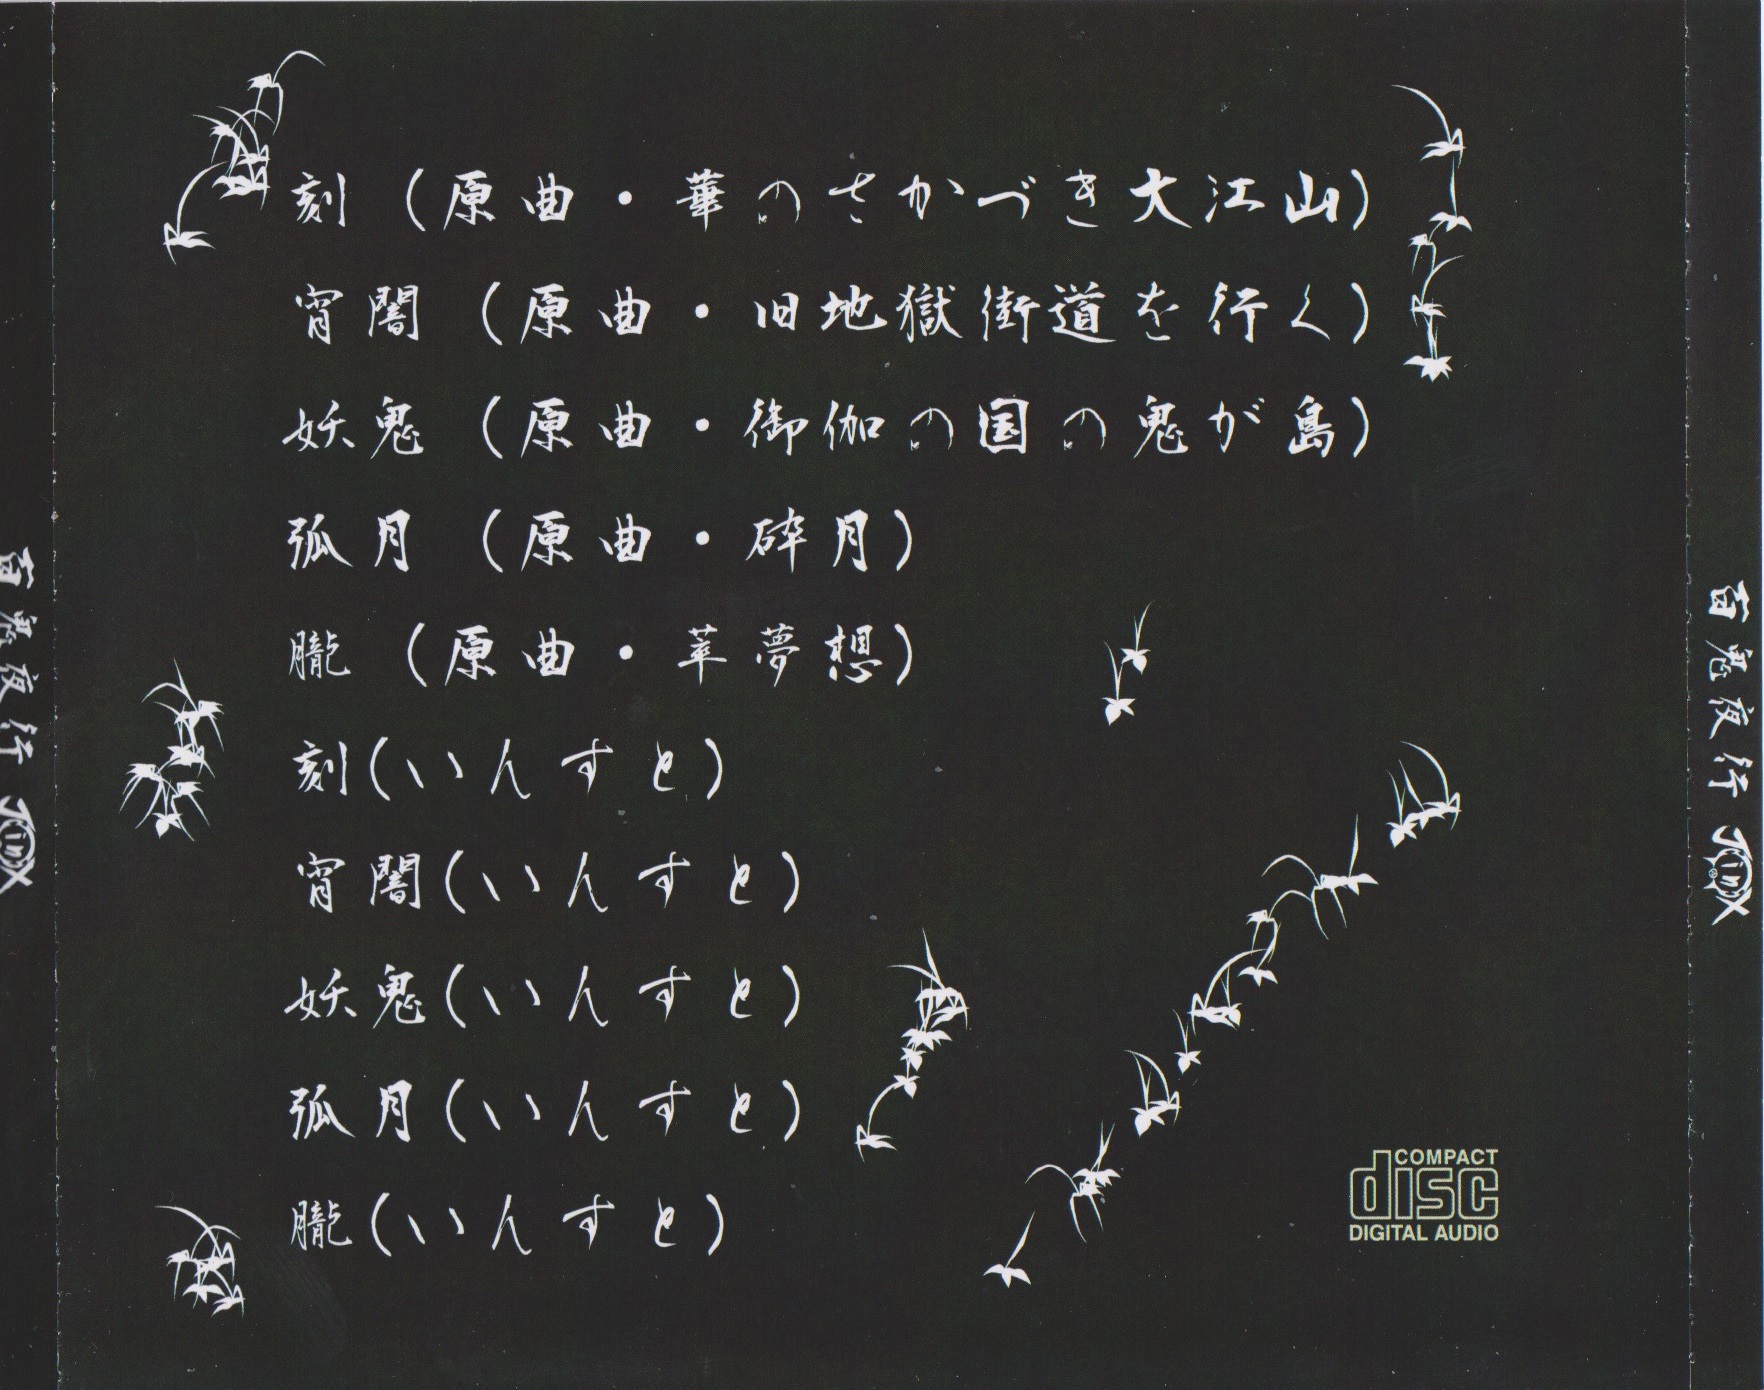 刻（原曲・華のさかづき大江山）
宵闇（原曲・旧地獄街道を行く）
妖鬼（原曲・御伽の国の鬼が島）
弧月（原曲・砕月）
朧（原曲・萃夢想）
刻（いんすと）
宵闇（いんすと）
妖鬼（いんすと）
弧月（いんすと）
朧（いんすと）
COMPACT
disc
DIGITAL AUDIO
百鬼夜行 JinX
百鬼夜行 JinX